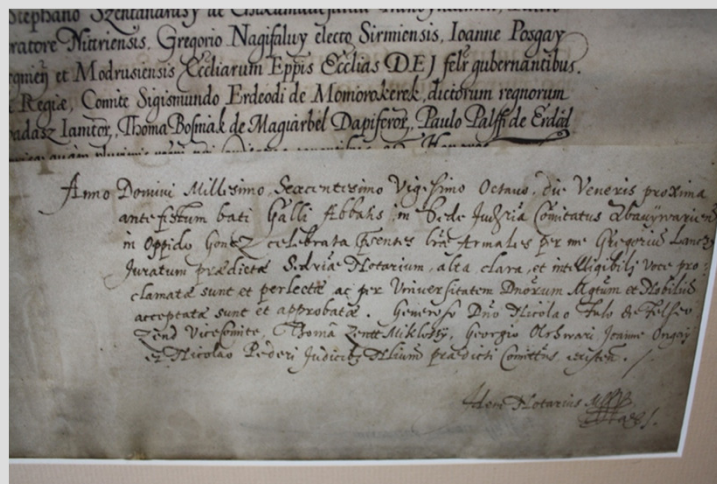 Stephano Szentandrasy de
ratore Nittriensis. Gregorio Nagifaluy electo Sirmiensis, Ioanne Posgay
et Modrusiensis Ecclīarum Eppis Ecclias DEJ felr gubernantibus.
Regiæ, Comite Sigismundo Erdeodi de Momorokerek, dictorum regnorum
Ianitor, Thoma Bosniak de Magiarbel Dapiferor, Paulo Palffi de Erdàl
Anno Domini Millesimo, Sexcentesimo Vigesimo Octavo, die Veneris proxima
ante festum bati Galli Abbatis in Sede Judria Comitatus Abauywarien
in Oppido Göncz celebrata Psentes lræ Armales per me Gregoriū
Juratum prædictæ Sedriæ Notarium, alta clara, et intelligibilj voce pro:
clamatæ sunt et perlectæ ac per Universitatem Dnorum Mgtum et Nobiliū
acceptatæ sunt et approbatæ. Generoso Dno Nicolao de
Vicecomite, Thoma Georgio Joanne
et Nicolao Pederi Judicibus Nlium prædicti Comittus existen.
Idem Notarius